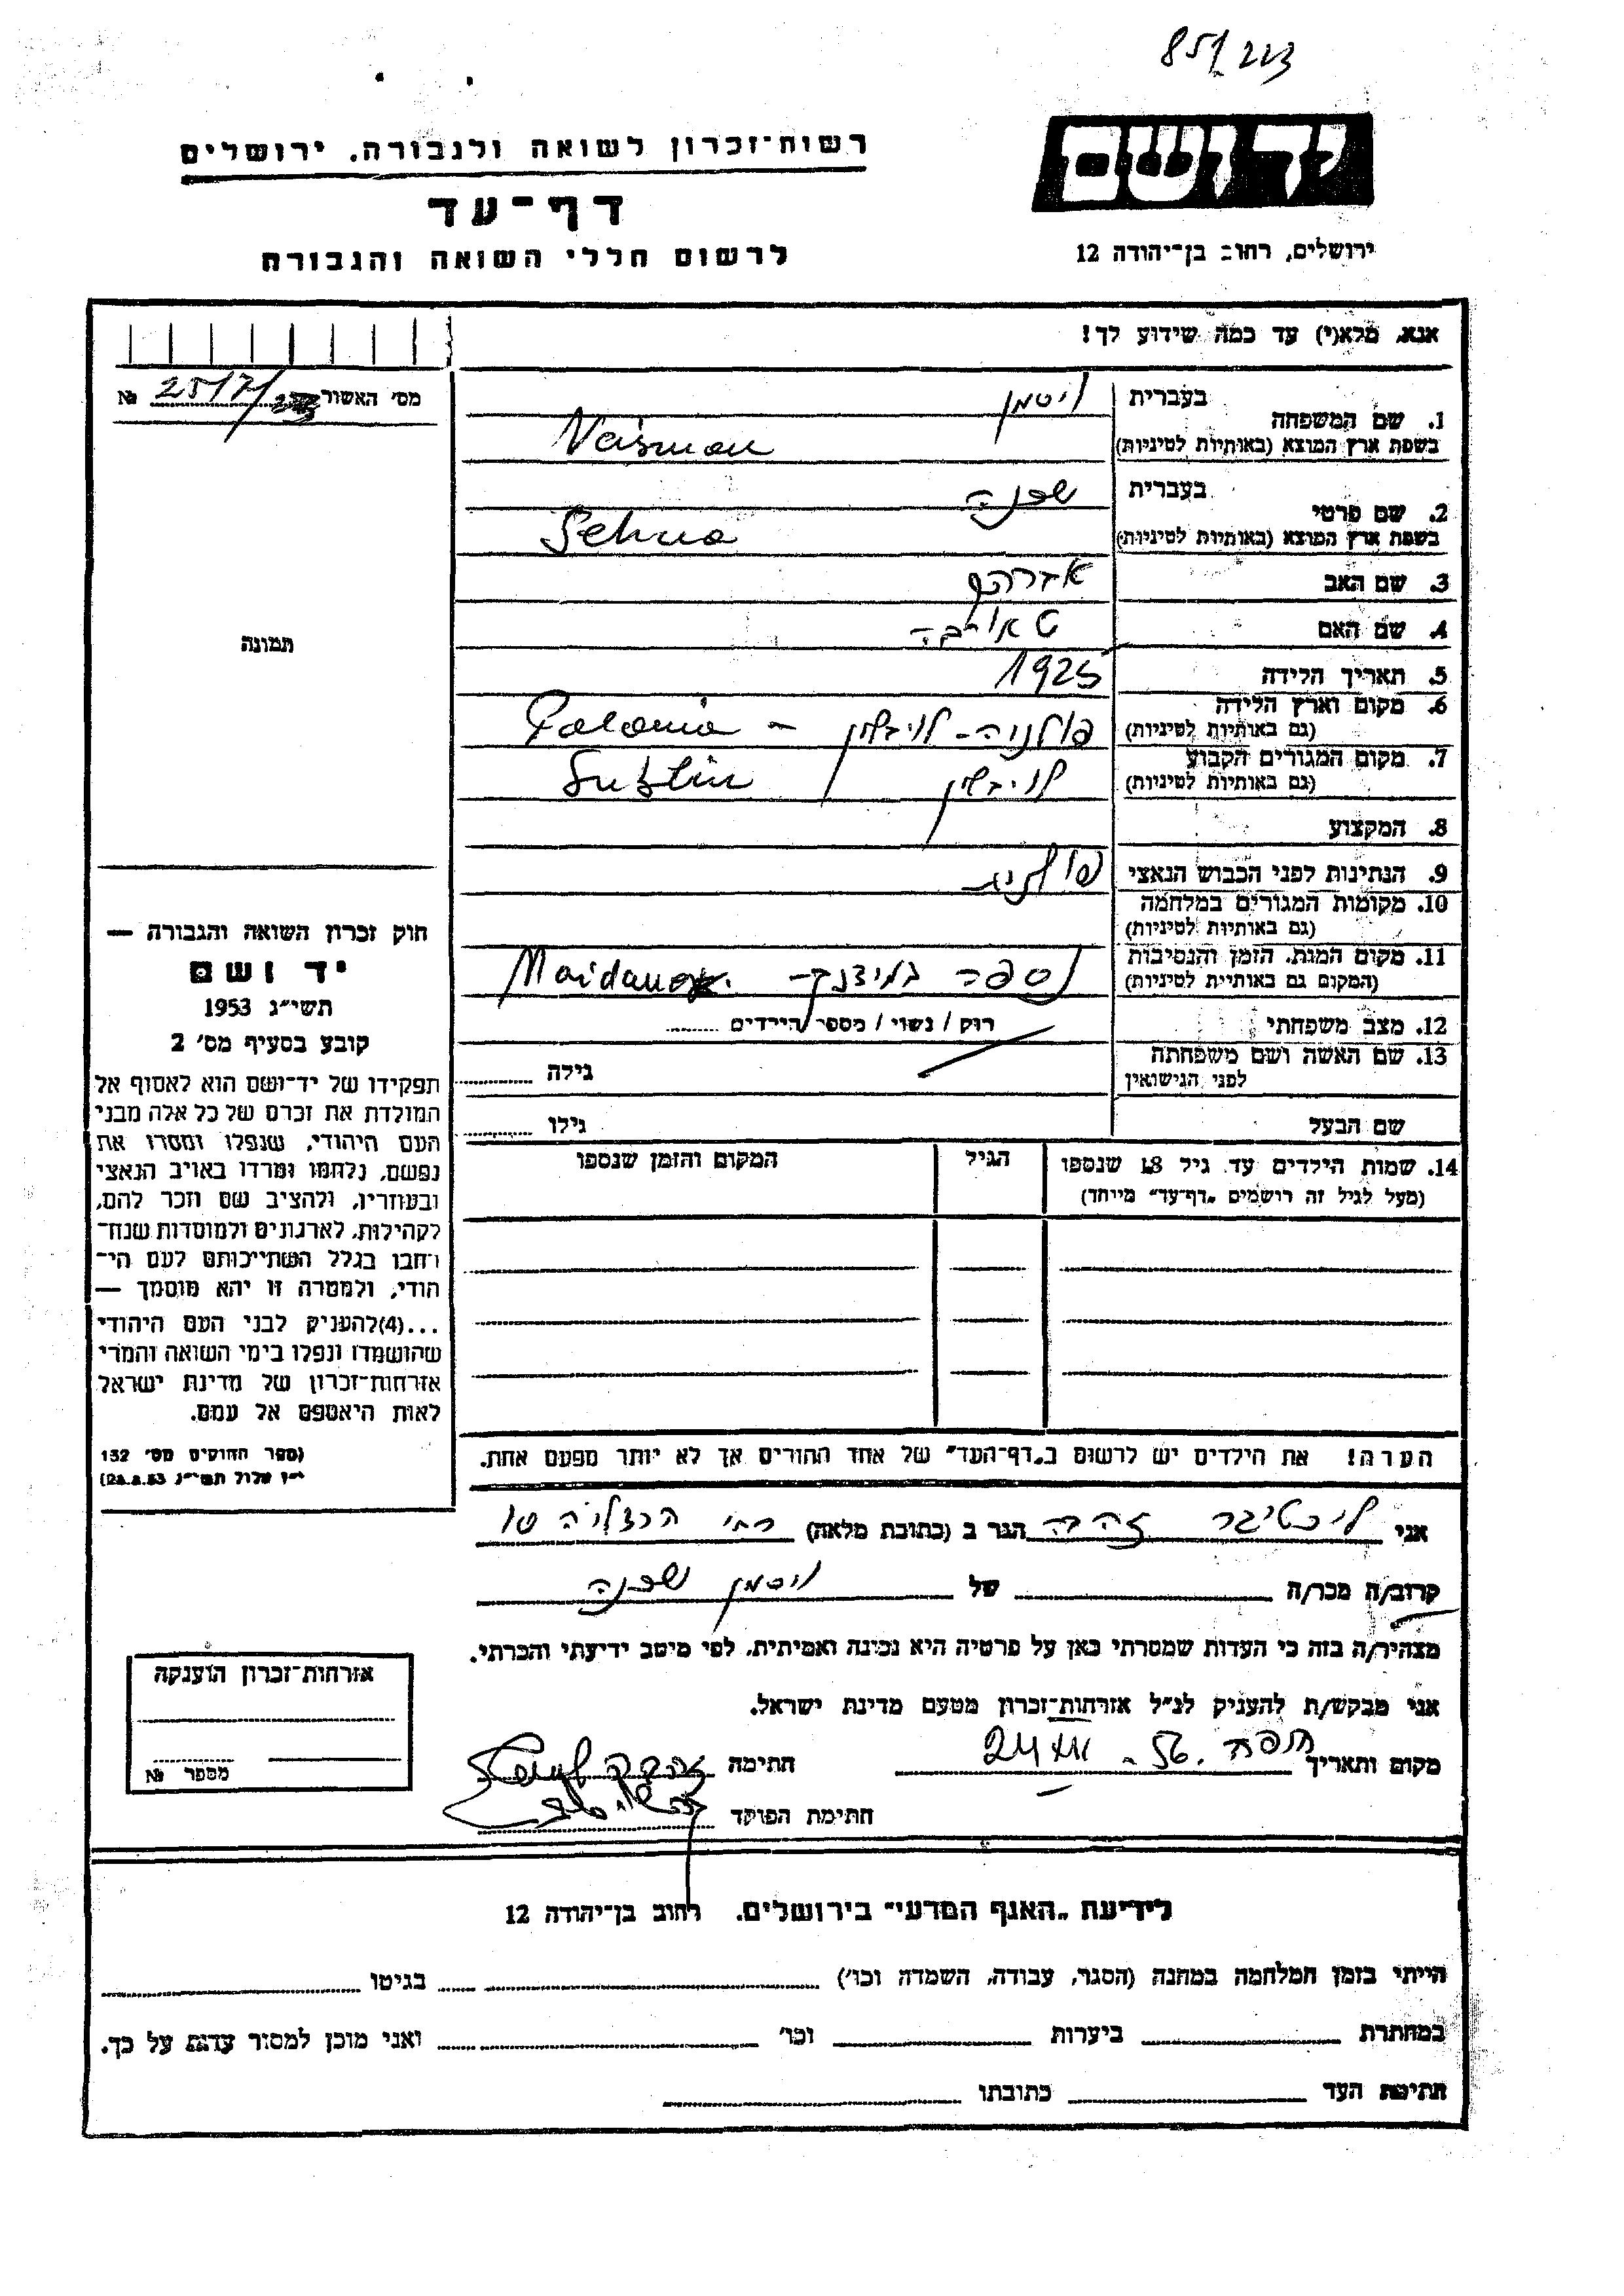 851/223
יד ושם
ירושלים, רחוב בן־יהודה 12
רשות־זכרון לשואה ולגבורה, ירושלים
דף־עד
לרשום חללי השואה והגבורה
אנא, מלא(י) עד כמה שידוע לך!
מס' האשור № 2517/
1. שם המשפחה בעברית ויסמן
בשפת ארץ המוצא (באותיות לטיניות) Vaisman
2. שם פרטי בעברית שפנה
בשפת ארץ המוצא (באותיות לטיניות)
3. שם האב אברהם
4. שם האם טאובה
5. תאריך הלידה 1925
6. מקום וארץ הלידה פולניה - לובלין - Polonia
(גם באותיות לטיניות)
7. מקום המגורים הקבוע לובלין Lublin
(גם באותיות לטיניות)
8. המקצוע
9. הנתינות לפני הכבוש הנאצי פולנית
10. מקומות המגורים במלחמה
(גם באותיות לטיניות)
11. מקום המות, הזמן והנסיבות נספה במידנק - Maidanek
(המקום גם באותיית לטיניות)
12. מצב משפחתי רוק / נשוי / מספר הילדים
13. שם האשה ושם משפחתה גילה
לפני הנישואין
שם הבעל גילו
14. שמות הילדים עד גיל 18 שנספו הגיל המקום והזמן שנספו
(מעל לגיל זה רושמים „דף־עד" מייחד)
הערה! את הילדים יש לרשום ב„דף־העד" של אחד ההורים אך לא יותר מפעם אחת.
תמונה
חוק זכרון השואה והגבורה —
יד ושם
תשי"ג 1953
קובע בסעיף מס' 2
תפקידו של יד־ושם הוא לאסוף אל
המולדת את זכרם של כל אלה מבני
העם היהודי, שנפלו ומסרו את
נפשם, נלחמו ומרדו באויב הנאצי
ובעוזריו, ולהציב שם וזכר להם,
לקהילות, לארגונים ולמוסדות שנח־
רחבו בגלל השתייכותם לעם הי־
הודי, ולמטרה זו יהא מוסמך —
...(4)להעניק לבני העם היהודי
שהושמדו ונפלו בימי השואה והמרי
אזרחות־זכרון של מדינת ישראל
לאות היאספם אל עמם.
(ספר החוקים מס' 132
י"ז אלול תשי"ג 28.8.53)
אני ליכטיגר זהבה הגר ב (כתובת מלאה) רח' הרצליה 10
קרוב/ה מכר/ה של ויסמן שפנה
מצהיר/ה בזה כי העדות שמסרתי כאן על פרטיה היא נכונה ואמיתית, לפי מיטב ידיעתי והכרתי.
אני מבקש/ת להעניק לנ"ל אזרחות־זכרון מטעם מדינת ישראל.
מקום ותאריך חיפה 24 XII - 56 חתימה
חתימת הפוקד
אזרחות־זכרון הוענקה
מספר №
לידיעת „האגף המדעי" בירושלים, רחוב בן־יהודה 12
הייתי בזמן המלחמה במחנה (הסגר, עבודה, השמדה וכו') בגיטו
במחתרת ביערות וכו' ואני מוכן למסור עדות על כך.
חתימת העד כתובתו